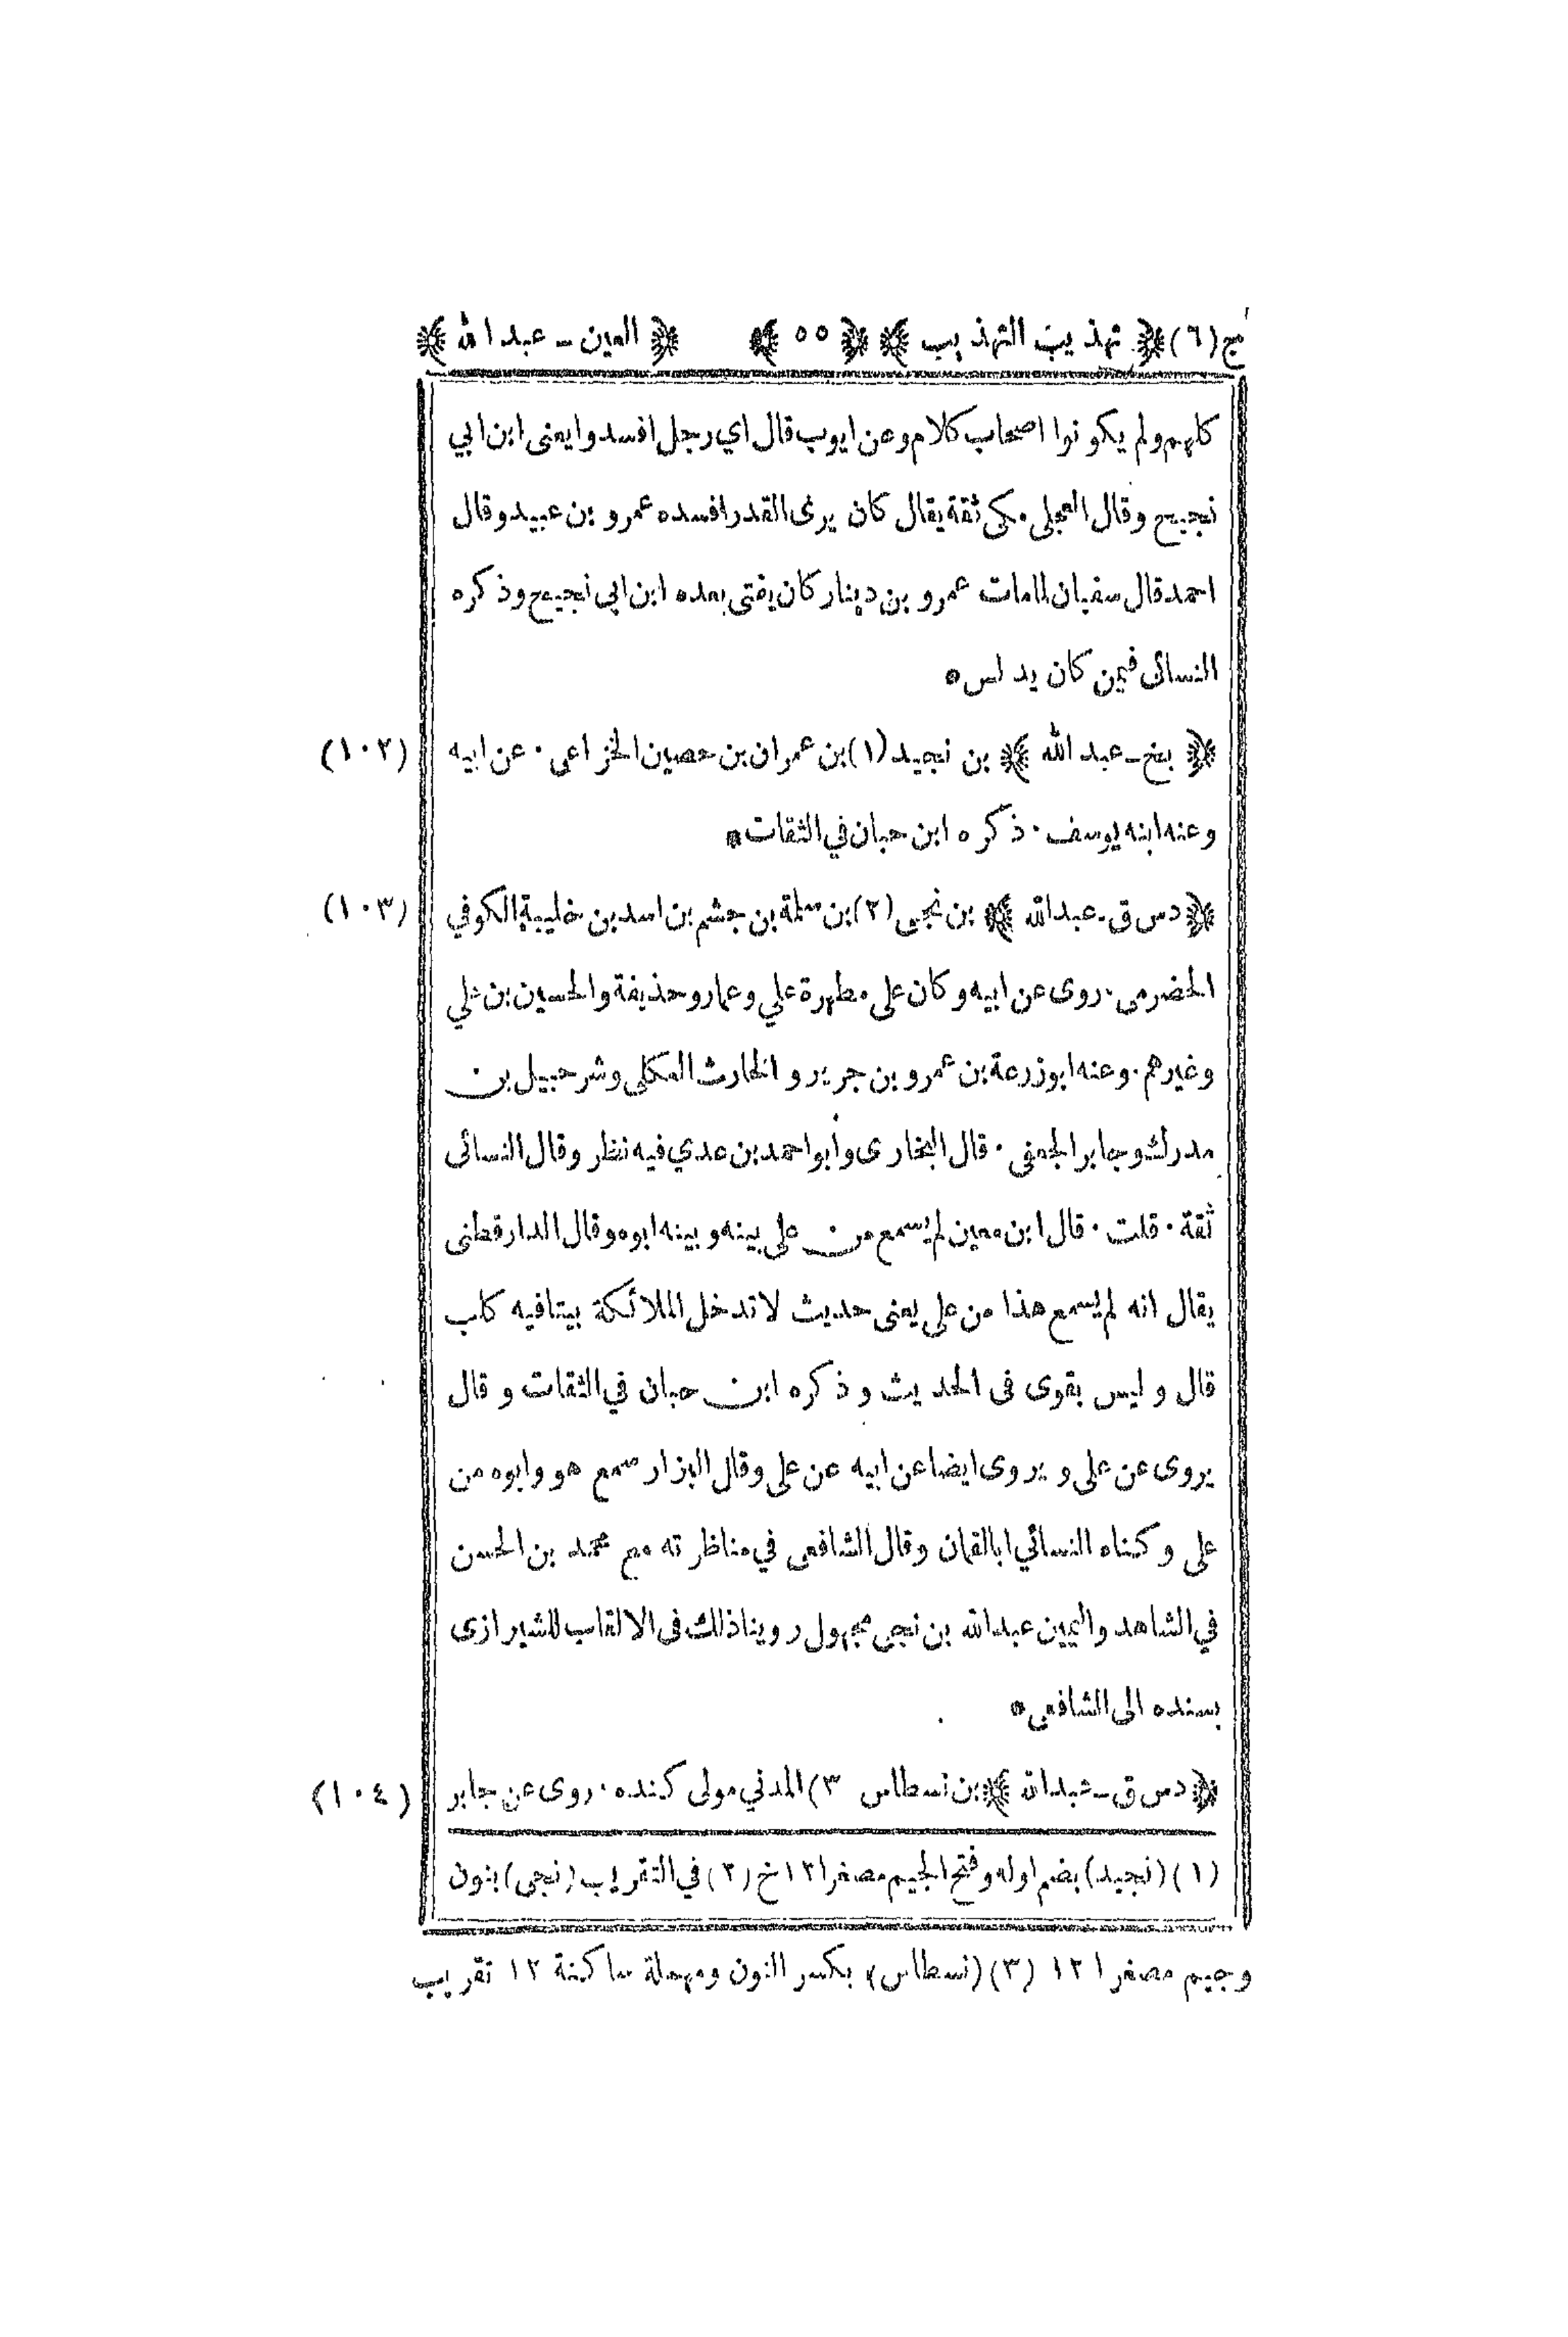 ج(٦) ﴿ تهذيب التهذيب ﴾ ﴿ ٥٥ ﴾ ﴿ العين ـ عبد الله ﴾
كلهم ولم يكونوا اصحاب كلام وعن ايوب قال اي رجل افسدوا يعنى ابن ابي
نجيح وقال العجلى مكى ثقة يقال كان يرى القدر افسده عمرو بن عبيد وقال
احمد قال سفيان لما مات عمرو بن دينار كان يفتى بعده ابن ابى نجيح وذكره
النسائى فيمن كان يدلس ٥
﴿ بخ ـ عبد الله ﴾ بن نجيد (١) بن عمران بن حصين الخزاعى · عن ابيه (١٠٢)
وعنه ابنه يوسف · ذكره ابن حبان في الثقات ٥
﴿ د س ق ـ عبد الله ﴾ بن نجى (٢) بن سلمة بن جشم بن اسد بن خليبة الكوفي (١٠٣)
الحضرمى · روى عن ابيه وكان على مطهرة علي وعمار وحذيفة والحسين بن علي
وغيرهم · وعنه ابو زرعة بن عمرو بن جرير والحارث العكلى وشرحبيل بن
مدرك وجابر الجعفى · قال البخارى وأبو احمد بن عدي فيه نظر وقال النسائى
ثقة · قلت · قال ابن معين لم يسمع من علي بينه وبينه ابوه وقال الدارقطنى
يقال انه لم يسمع هذا من على يعنى حديث لا تدخل الملائكة بيتا فيه كلب
قال وليس بقوى فى الحديث وذكره ابن حبان في الثقات وقال
يروى عن على ويروى ايضا عن ابيه عن على وقال البزار سمع هو وابوه من
على وكناه النسائي ابا لقمان وقال الشافعى في مناظرته مع محمد بن الحسن
في الشاهد واليمين عبد الله بن نجى مجهول روينا ذلك فى الالقاب للشيرازى
بسنده الى الشافعى ٥
﴿ د س ق ـ عبد الله ﴾ بن نسطاس ٣) المدني مولى كنده · روى عن جابر (١٠٤)
(١) (نجيد) بضم اوله وفتح الجيم مصغرا ١٢ خ (٢) في التقريب (نجى) بنون
وجيم مصغرا ١٢ (٣) (نسطاس) بكسر النون ومهملة ساكنة ١٢ تقريب